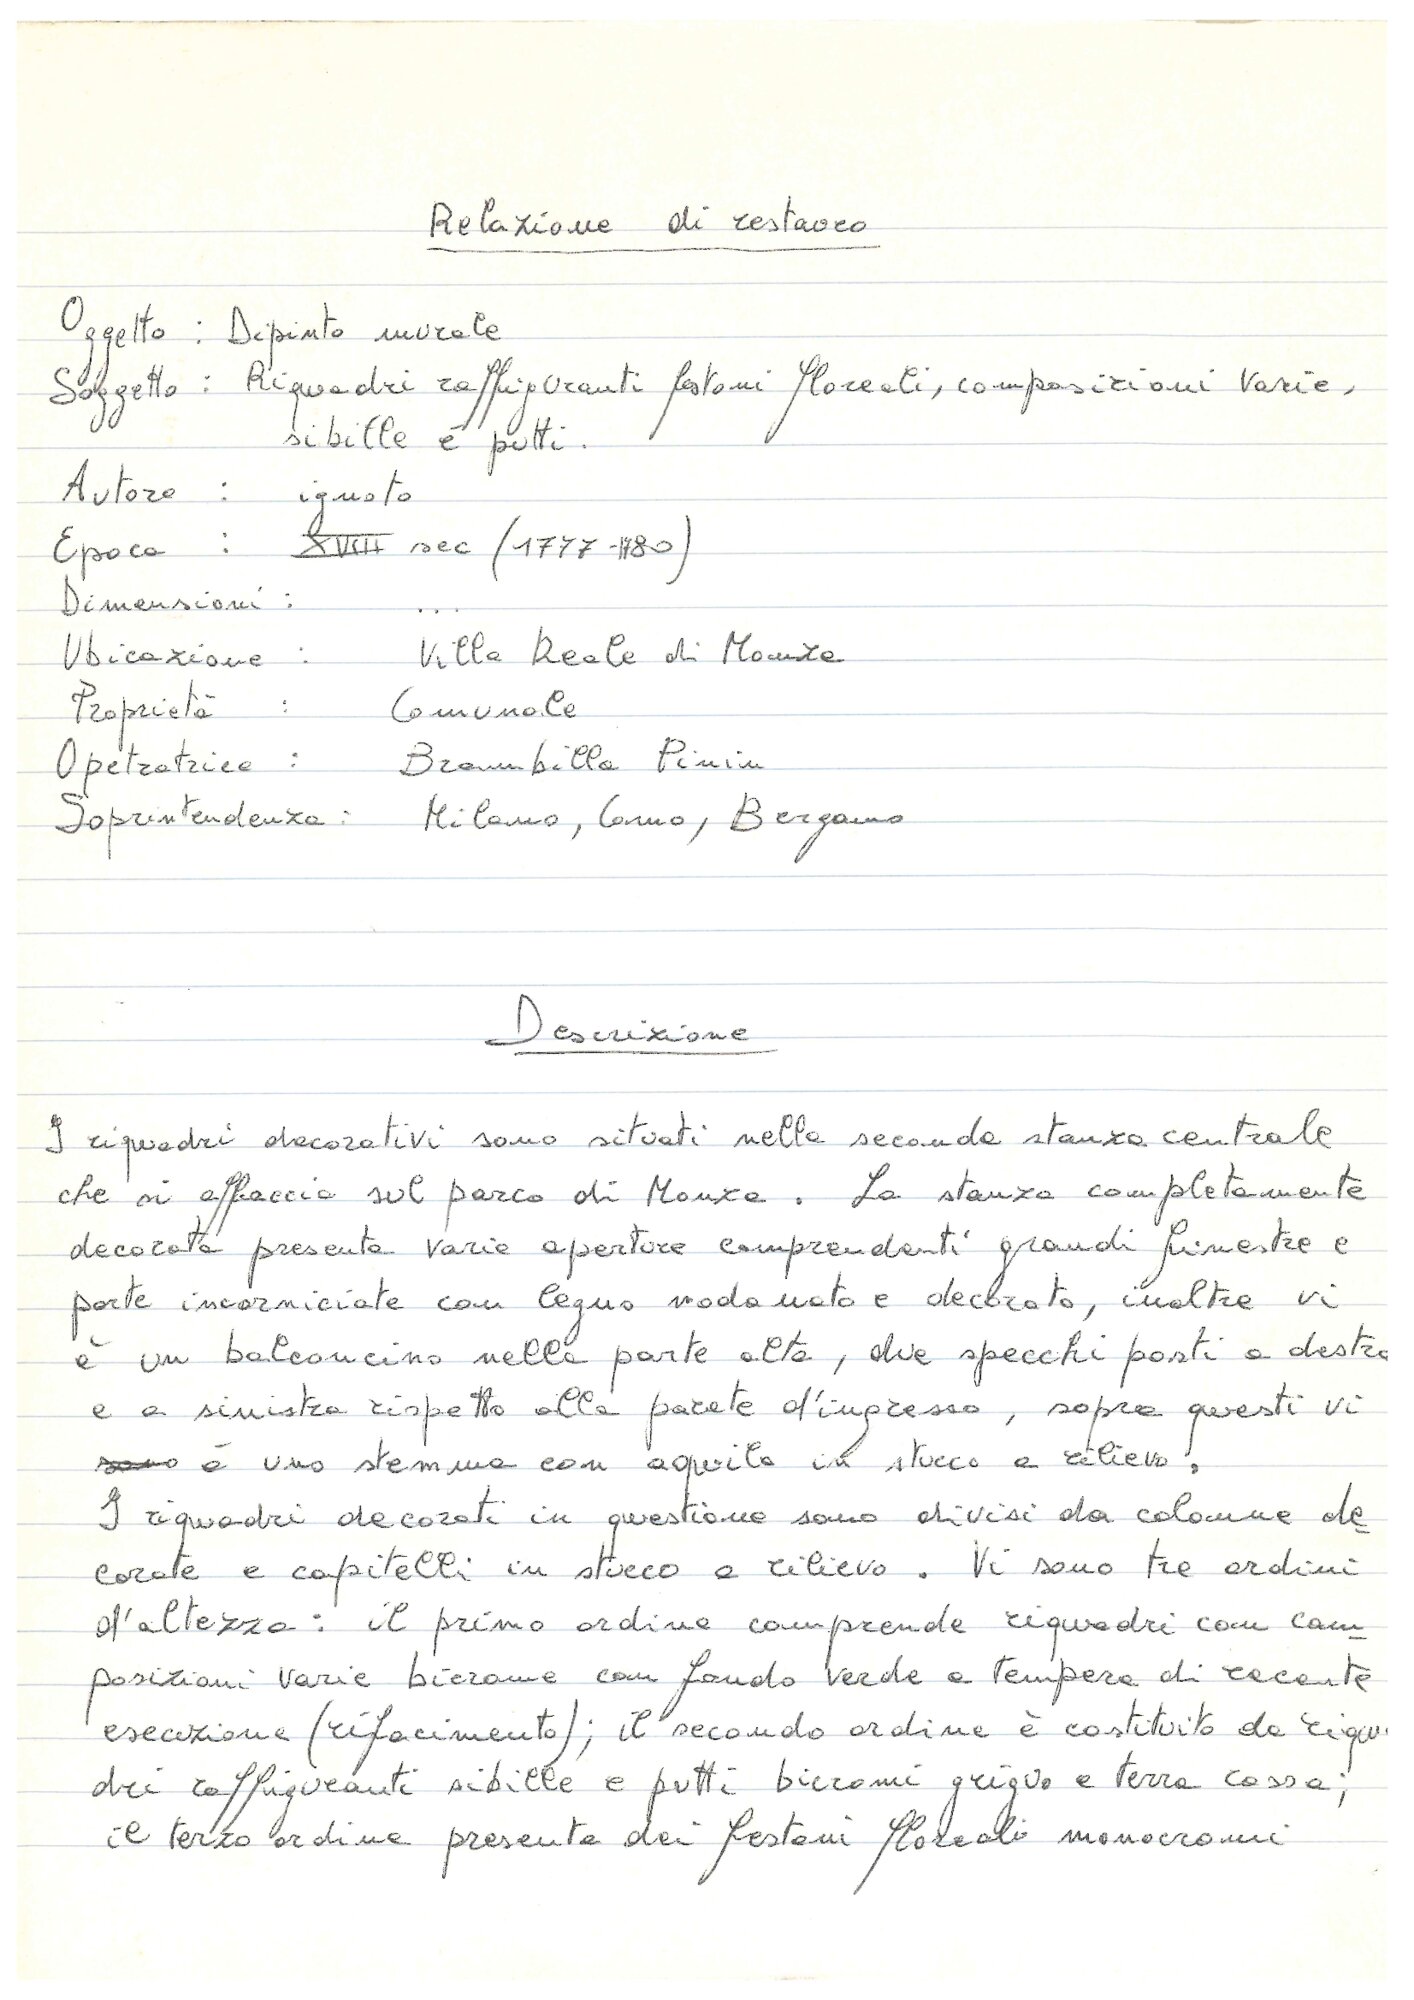 Relazione di restauro
Oggetto : Dipinto murale
Soggetto : Riquadri raffiguranti festoni floreali, composizioni varie,
sibille e putti.
Autore : ignoto
Epoca : XVIII sec (1777-1780)
Dimensioni : ...
Ubicazione : Villa Reale di Monza
Proprietà : Comunale
Opetratrice : Brambilla Pinin
Soprintendenza : Milano, Como, Bergamo
Descrizione
I riquadri decorativi sono situati nella seconda stanza centrale
che si affaccia sul parco di Monza. La stanza completamente
decorata presenta varie aperture comprendenti grandi finestre e
porte incorniciate con legno modanato e decorato, inoltre vi
è un balconcino nella parte alta, due specchi posti a destra
e a sinistra rispetto alla parete d'ingresso, sopra questi vi
sono è uno stemma con aquila in stucco a rilievo.
I riquadri decorati in questione sono divisi da colonne de-
corate e capitelli in stucco a rilievo. Vi sono tre ordini
d'altezza: il primo ordine comprende riquadri con com-
posizioni varie bicrome con fondo verde a tempera di recente
esecuzione (rifacimento); il secondo ordine è costituito da riqua
dri raffiguranti sibille e putti bicromi grigio e terra cossa;
il terzo ordine presenta dei festoni floreali monocromi